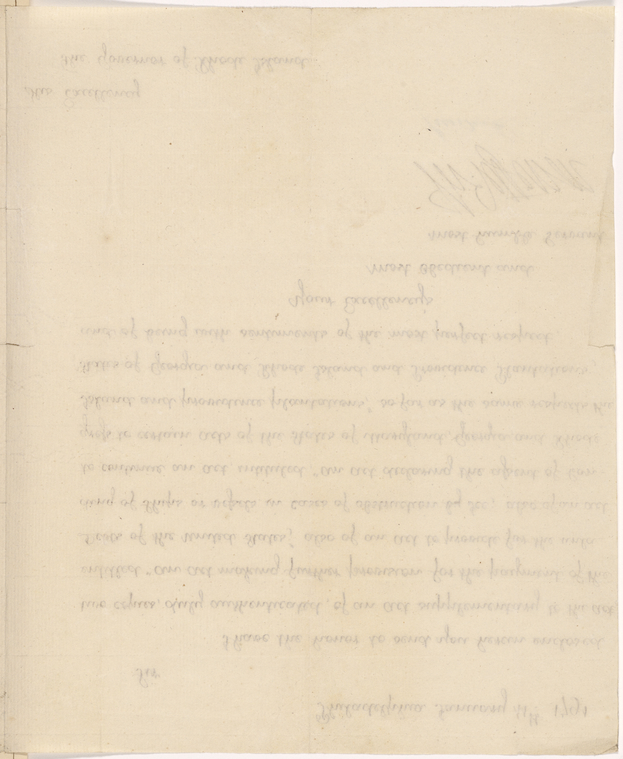 Philadelphia January 11th 1791
Sir
I have the honor to send you herein enclosed
two copies, duly authenticated, of an Act supplementary to the Act
entitled "An Act making further provision for the payment of the
debts of the United States," also of an Act to provide for the unla-
ding of Ships or Vessels in cases of obstruction by Ice, also of an act
to continue an act intituled "An Act declaring the assent of Con-
gress to certain acts of the States of Maryland, Georgia and Rhode
Island and providence plantations," so far as the same respects the
States of Georgia and Rhode Island and Providence Plantations,
and of being with sentiments of the most perfect respect
Your Excellency's
most obedient and
most humble Servant
His Excellency
the Governor of Rhode Island.